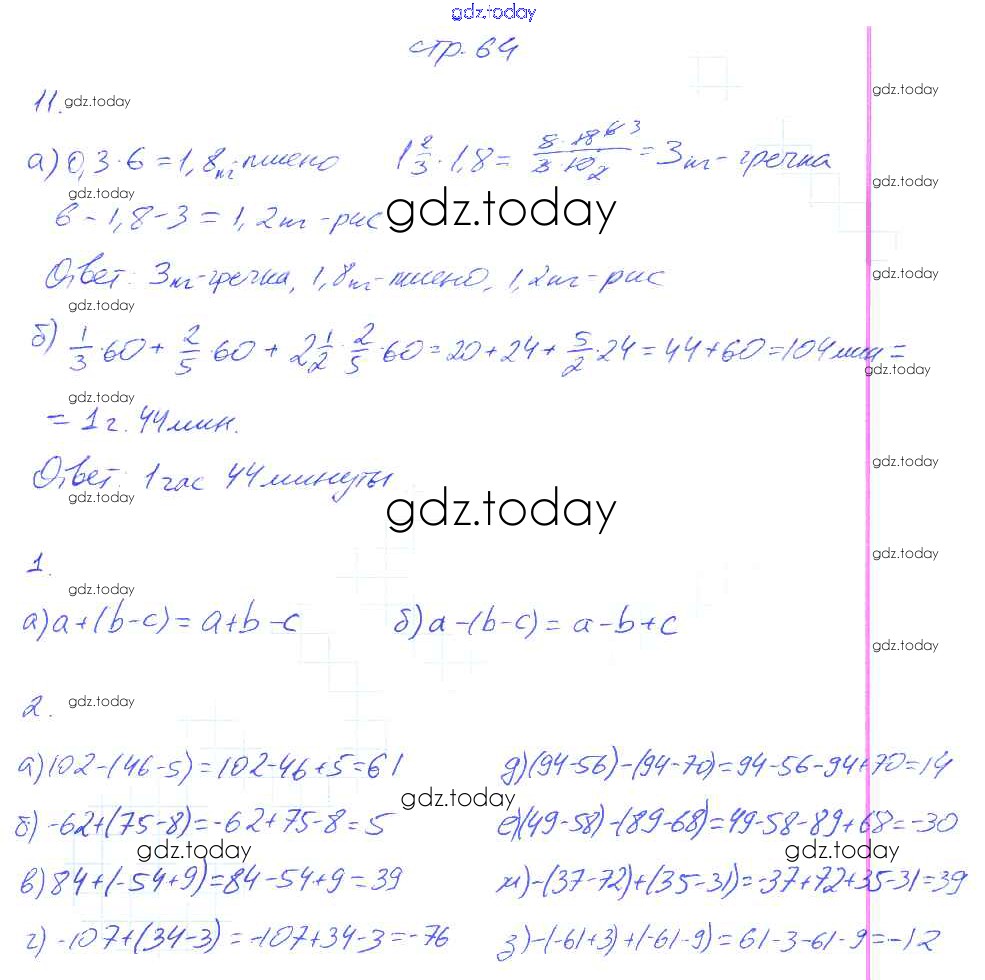 gdz.today
стр. 64
11. gdz.today
gdz.today
а) 0,3·6 = 1,8кг-пшено 1 2/3 · 1,8 = 5·18 6 3 / 3·10 2 = 3кг-гречка
gdz.today gdz.today
6-1,8-3 = 1,2кг-рис gdz.today
Ответ: 3кг-гречка, 1,8кг-пшено, 1,2кг-рис gdz.today
gdz.today
б) 1/3·60 + 2/5·60 + 2 1/2·2/5·60 = 20+24+ 5/2·24 = 44+60 = 104мин =
gdz.today gdz.today
= 1ч. 44мин.
Ответ: 1час 44минуты gdz.today
gdz.today gdz.today
1. gdz.today
gdz.today
а) a+(b-c) = a+b-c б) a-(b-c) = a-b+c
gdz.today
2. gdz.today
а) 102-(46-5) = 102-46+5 = 61 д) (94-56)-(94-70) = 94-56-94+70 = 14
gdz.today
б) -62+(75-8) = -62+75-8 = 5 е) (49-58)-(89-68) = 49-58-89+68 = -30
gdz.today gdz.today
в) 84+(-54+9) = 84-54+9 = 39 ж) -(37-72)+(35-31) = -37+72+35-31 = 39
г) -107+(34-3) = -107+34-3 = -76 з) -(-61+3)+(-61-9) = 61-3-61-9 = -12